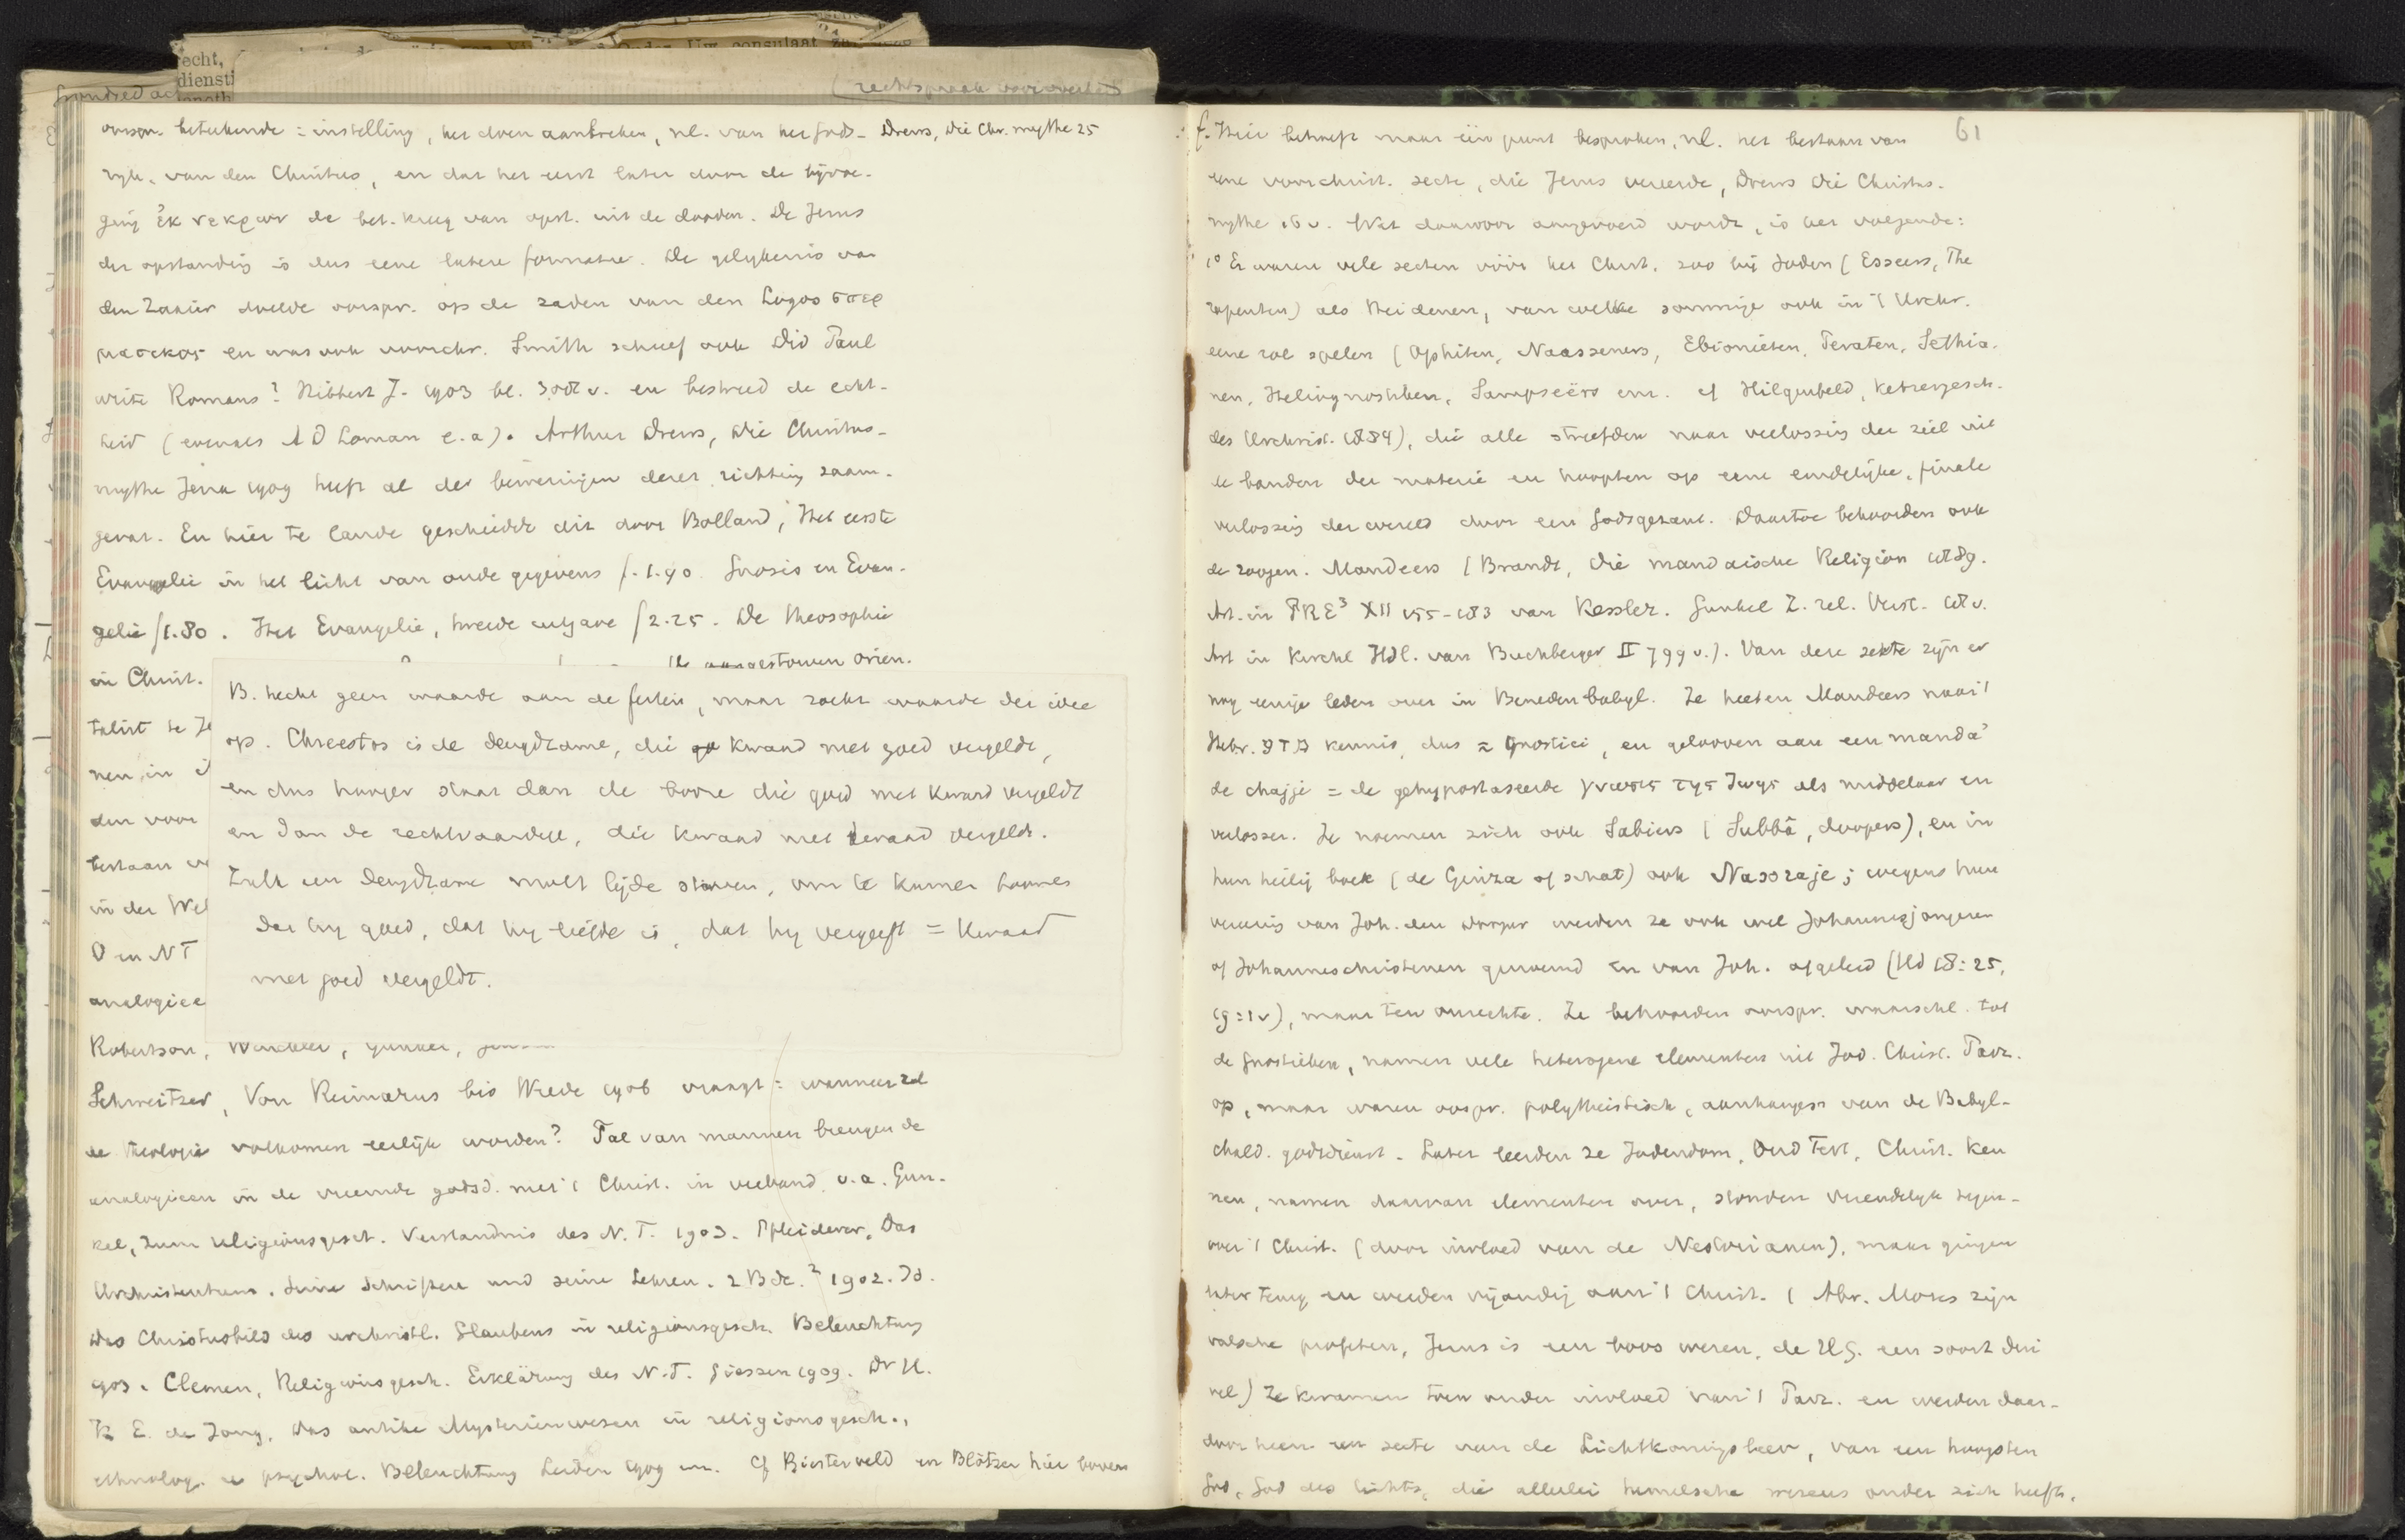 echt,
diensti
Uw consulaat
(rechtspraak
oorspr. beteekende : instelling, het doen aanbreken, nl. van het Gods- Drews, Die Chr. mythe 25
ryk, van den Christus, en dat het eerst later door de bijvoe-
ging ἐκ νεκρων de bet. kreeg van opst. uit de dooden. De Jezus
der opstanding is dus eene latere formatie. De gelykenis van
den Zaaier doelde oorspr. op de zaden van den Logos σπερ
ματικος en was ook voorchr. Smith schreef ook Did Paul
write Romans? Hibbert J. 1903 bl. 308 v. en bestreed de echt-
heid (evenals A D Loman e.a). Arthur Drews, Die Christus-
mythe Jena 1909 heeft al de beweringen dezer richting saam-
gevat. En hier te lande geschiedde dit door Bolland, Het eerste
Evangelie in het licht van oude gegevens f. 1.90. Gnosis en Evan-
gelie f1.80. Het Evangelie, tweede uitgave f2.25. De theosophie
in Christ. orien.
B. hecht geen waarde aan de feiten, maar zoekt waarde der idee
op. Chreestos is de deugdzame, die kwaad met goed vergeldt,
en dus hooger staat dan de booze die goed met kwaad vergeldt
en dan de rechtvaardige, die kwaad met kwaad vergeldt.
Zulk een deugdzame moet lijden sterven, om te kunnen toonen
dat hy goed, dat hy liefde is, dat hy vergeeft = kwaad
met goed vergeldt.
nen, in
den voor
bestaan
in der
O en NT
analogiee
Robertson, Winckler, Gunkel,
Schweitzer, Von Reimarus bis Wrede 1906 vraagt : wanneer zal
de theologie volkomen eerlijk worden? Tal van mannen brengen de
analogieen in de vreemde godsd. met 't Christ. in verband. v.a. Gun-
kel, Zum religionsgesch. Verständnis des N.T. 1903. Pfleiderer, Das
Urchristentum. Seine Schriften und seine Lehren. 2 Bde.² 1902. Id.
Das Christusbild des urchristl. Glaubens in religionsgesch. Beleuchtung
1903. Clemen, Religionsgesch. Erklärung des N.T. Giessen 1909. Dr H.
K E. de Jong, Das antike Mysterienwesen in religionsgesch.,
ethnolog. u psychol. Beleuchtung Leiden 1909 enz. Cf Biesterveld en Blötzer hier boven
61
f. Hier behoeft maar één punt besproken, nl. het bestaan van
eene voorchrist. secte, die Jezus vereerde, Drews Die Christus-
mythe 16 v. Wat daarvoor aangevoerd wordt, is het volgende:
1° Er waren vele secten vóór het Christ. zoo bij Joden (Esseers, The
rapeuten) als Heidenen, van welke sommige ook in 't Urchr.
eene rol spelen (Ophiten, Naasseners, Ebionieten, Peraten, Sethia-
nen, Heliognosten, Sampseërs enz. cf Hilgenfeld, Ketzergesch.
des Urchrist. 1884), die alle streefden naar verlossing der ziel uit
de banden der materie en hoopten op eene eindelijke, finale
verlossing der wereld door een Godsgezant. Daartoe behoorden ook
de zoogen. Mandeers (Brandt, Die mandäische Religion 1889.
Art. in PRE³ XII 155-183 van Kessler. Gunkel Z. rel. Verst. 18 v.
Art in Kirchl Hdl. van Buchberger II 799 v.). Van deze sekte zijn er
nog eenige leden over in Benedenbabyl. Ze heeten Mandeers naar 't
Hebr. מדע kennis, dus = Gnostici, en gelooven aan een manda
de chajje = de gehypostaseerde γνωσις της ζωης als middelaar en
verlosser. Ze noemen zich ook Sabiers (Subbâ, doopers), en in
hun heilig boek (de Ginza of schat) ook Nasoraje; wegens hun
vereering van Joh. den dooper werden ze ook wel Johannesjongeren
of Johanneschristenen genoemd en van Joh. afgeleid (Hd 18:25,
19:1v), maar ten onrechte. Ze behoorden oorspr. waarschl. tot
de Gnostieken, namen vele heterogene elementen uit Jod. Christ. Parz.
op, maar waren oospr. polytheïstisch, aanhangers van de Babyl-
chald. godsdienst. Later leerden ze Jodendom, Oud Test, Christ. ken
nen, namen daarvan elementen over, stonden vriendelyk tegen-
over 't Christ. (door invloed van de Nestorianen), maar gingen
later terug en werden vijandig aan 't Christ. (Abr. Mozes zijn
valsche profeten, Jezus is een boos wezen, de H.G. een soort dui
vel) Ze kwamen toen onder invloed van 't Parz. en werden daar-
door heen een secte van de Lichtkoningsleer, van een hoogsten
God, God des lichts, die allerlei hemelsche wezens onder zich heeft.